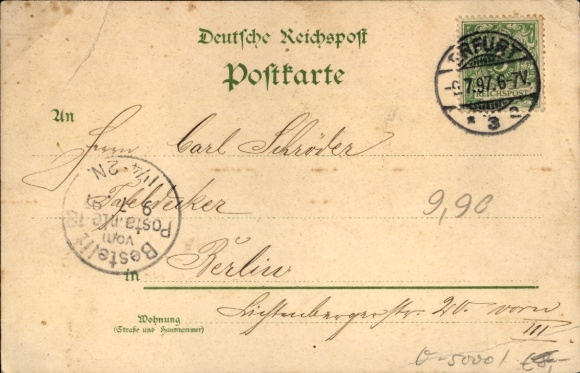 Deutsche Reichspost
Postkarte
ERFURT
7.97.6-7V.
* 3 a
REICHSPOST
An
Herrn Carl Schröder
Tafeldecker
9,90
in Berlin
Wohnung
(Straße und Hausnummer)
Lichtenbergerstr. 20. vorn
III.
Bestellt
vom
Postamte 18
9 7 97
11¼-2N.